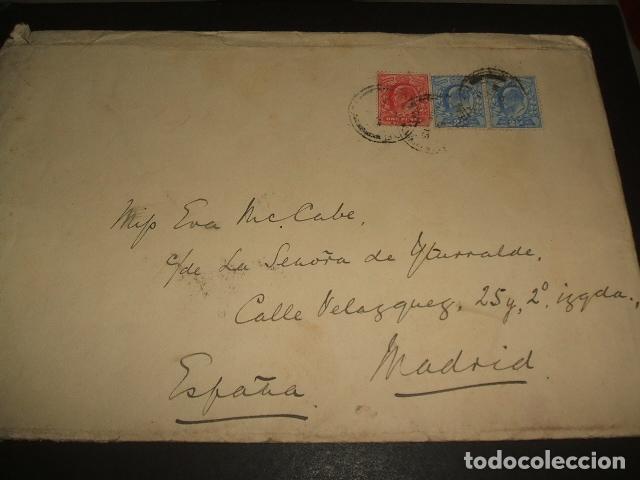 ONE PENNY
Miss Eva Mc. Cabe,
c/de La Señora de Yturralde,
Calle Velazquez, 25y, 2º. izgda.,
Madrid
España.
todocoleccion